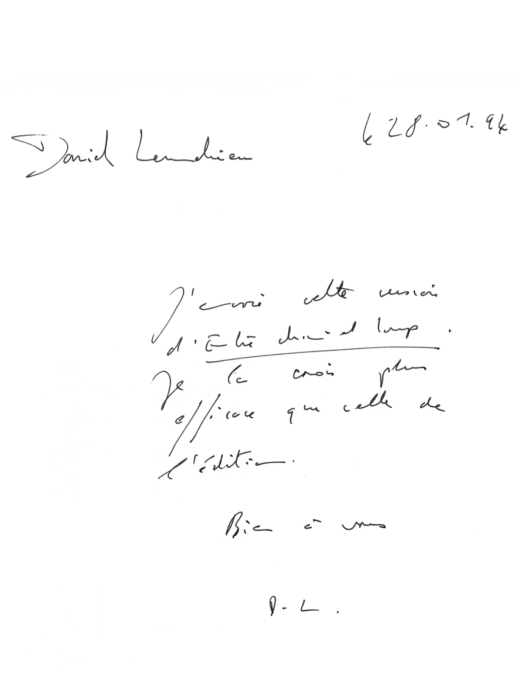 le 28.01.94
Daniel Lemahieu
J'envoie cette version
d'Entre chien et loup.
Je la crois plus
efficace que celle de
l'édition.
Bien à vous
D-L.